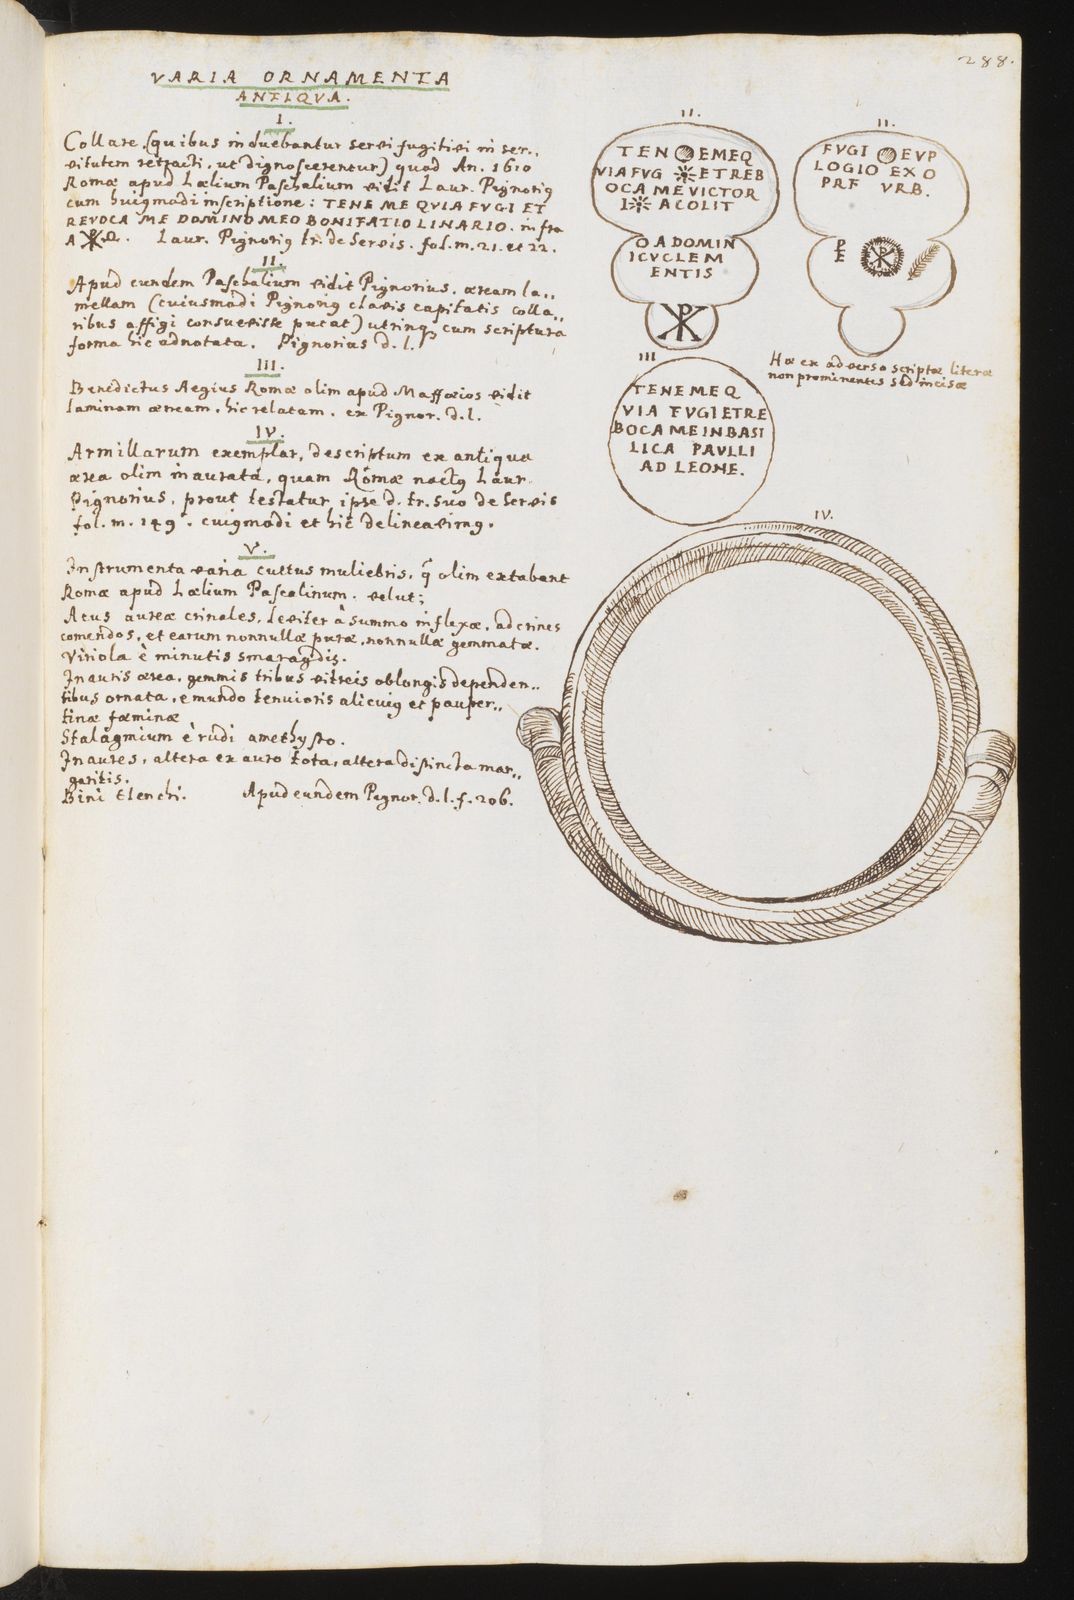 288.
VARIA ORNAMENTA
ANTIQVA.
I.
Collare, (quibus induebantur servi fugitivi in ser„
vitutem retracti, ut dignoscerentur) quod An. 1610
Romæ apud Lælium Paschalium vidit Laur. Pignoriꝰ
cum huiꝰmodi inscriptione: TENE ME QVIA FVGI ET
REVOCA ME DOMINO MEO BONIFATIO LINARIO. infra
A ☧ Ω. Laur. Pignoriꝰ tr. de Servis. fol. m. 21. et 22.
II.
Apud eundem Paschalium vidit Pignorius. æream la„
mellam (cuiusmodi Pignoriꝰ clavis capitatis colla„
ribus affigi consuevisse putat) utrinq; cum scriptura
forma hic adnotata. Pignorius d. l.
III.
Benedictus Aegius Romæ olim apud Maffæios vidit
laminam æneam. hic relatam. ex Pignor. d. l.
IV.
Armillarum exemplar, descriptum ex antiqua
ærea olim inaurata, quam Romæ nactꝰ Laur.
Pignorius, prout testatur ipse d. tr. suo de Servis
fol. m. 149. cuiꝰmodi et hic delineavimꝰ.
V.
Instrumenta varia cultus muliebris, q̃ olim extabant
Romæ apud Lælium Pascalinum. velut;
Acus aureæ crinales, leviter à summo inflexæ, ad crines
comendos, et earum nonnullæ puræ, nonnullæ gemmatæ.
Viriola è minutis smaragdis.
Inauris ærea, gemmis tribus vitreis oblongis dependen„
tibus ornata, e mundo tenuioris alicuiꝰ et pauper„
tinæ fæminæ
Stalagmium è rudi amethysto.
Inaures, altera ex auro tota, altera distincta mar„
garitis.
Bini Elenchi. Apud eundem Pignor. d. l. f. 206.
II.
TENOEMEQ
VIAFVG ETREB
OCAMEVICTOR
I ACOLIT
OADOMIN
ICVCLEM
ENTIS
☧
II.
FVGI EVP
LOGIO EXO
PRF VRB.
P
E
☧
Hæ ex adverso scriptæ literæ
non prominentes sed incisæ
III
TENEMEQ
VIA FVGIETRE
BOCAMEINBASI
LICA PAVLLI
AD LEONE.
IV.